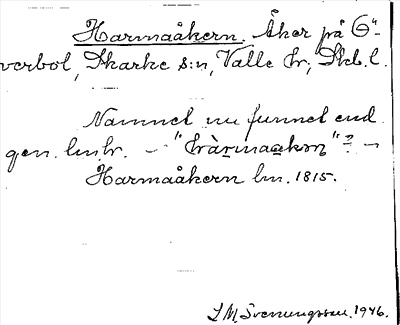 Harmaåkern. Åker på G"-
verbol, Skarke s:n, Valle hr, Skb.l.
Namnet nu funnet end.
gen. lm.br. – "hàrmaakọn"? –
Harmaåkern lm. 1815.
L M Svenungsson. 1946.